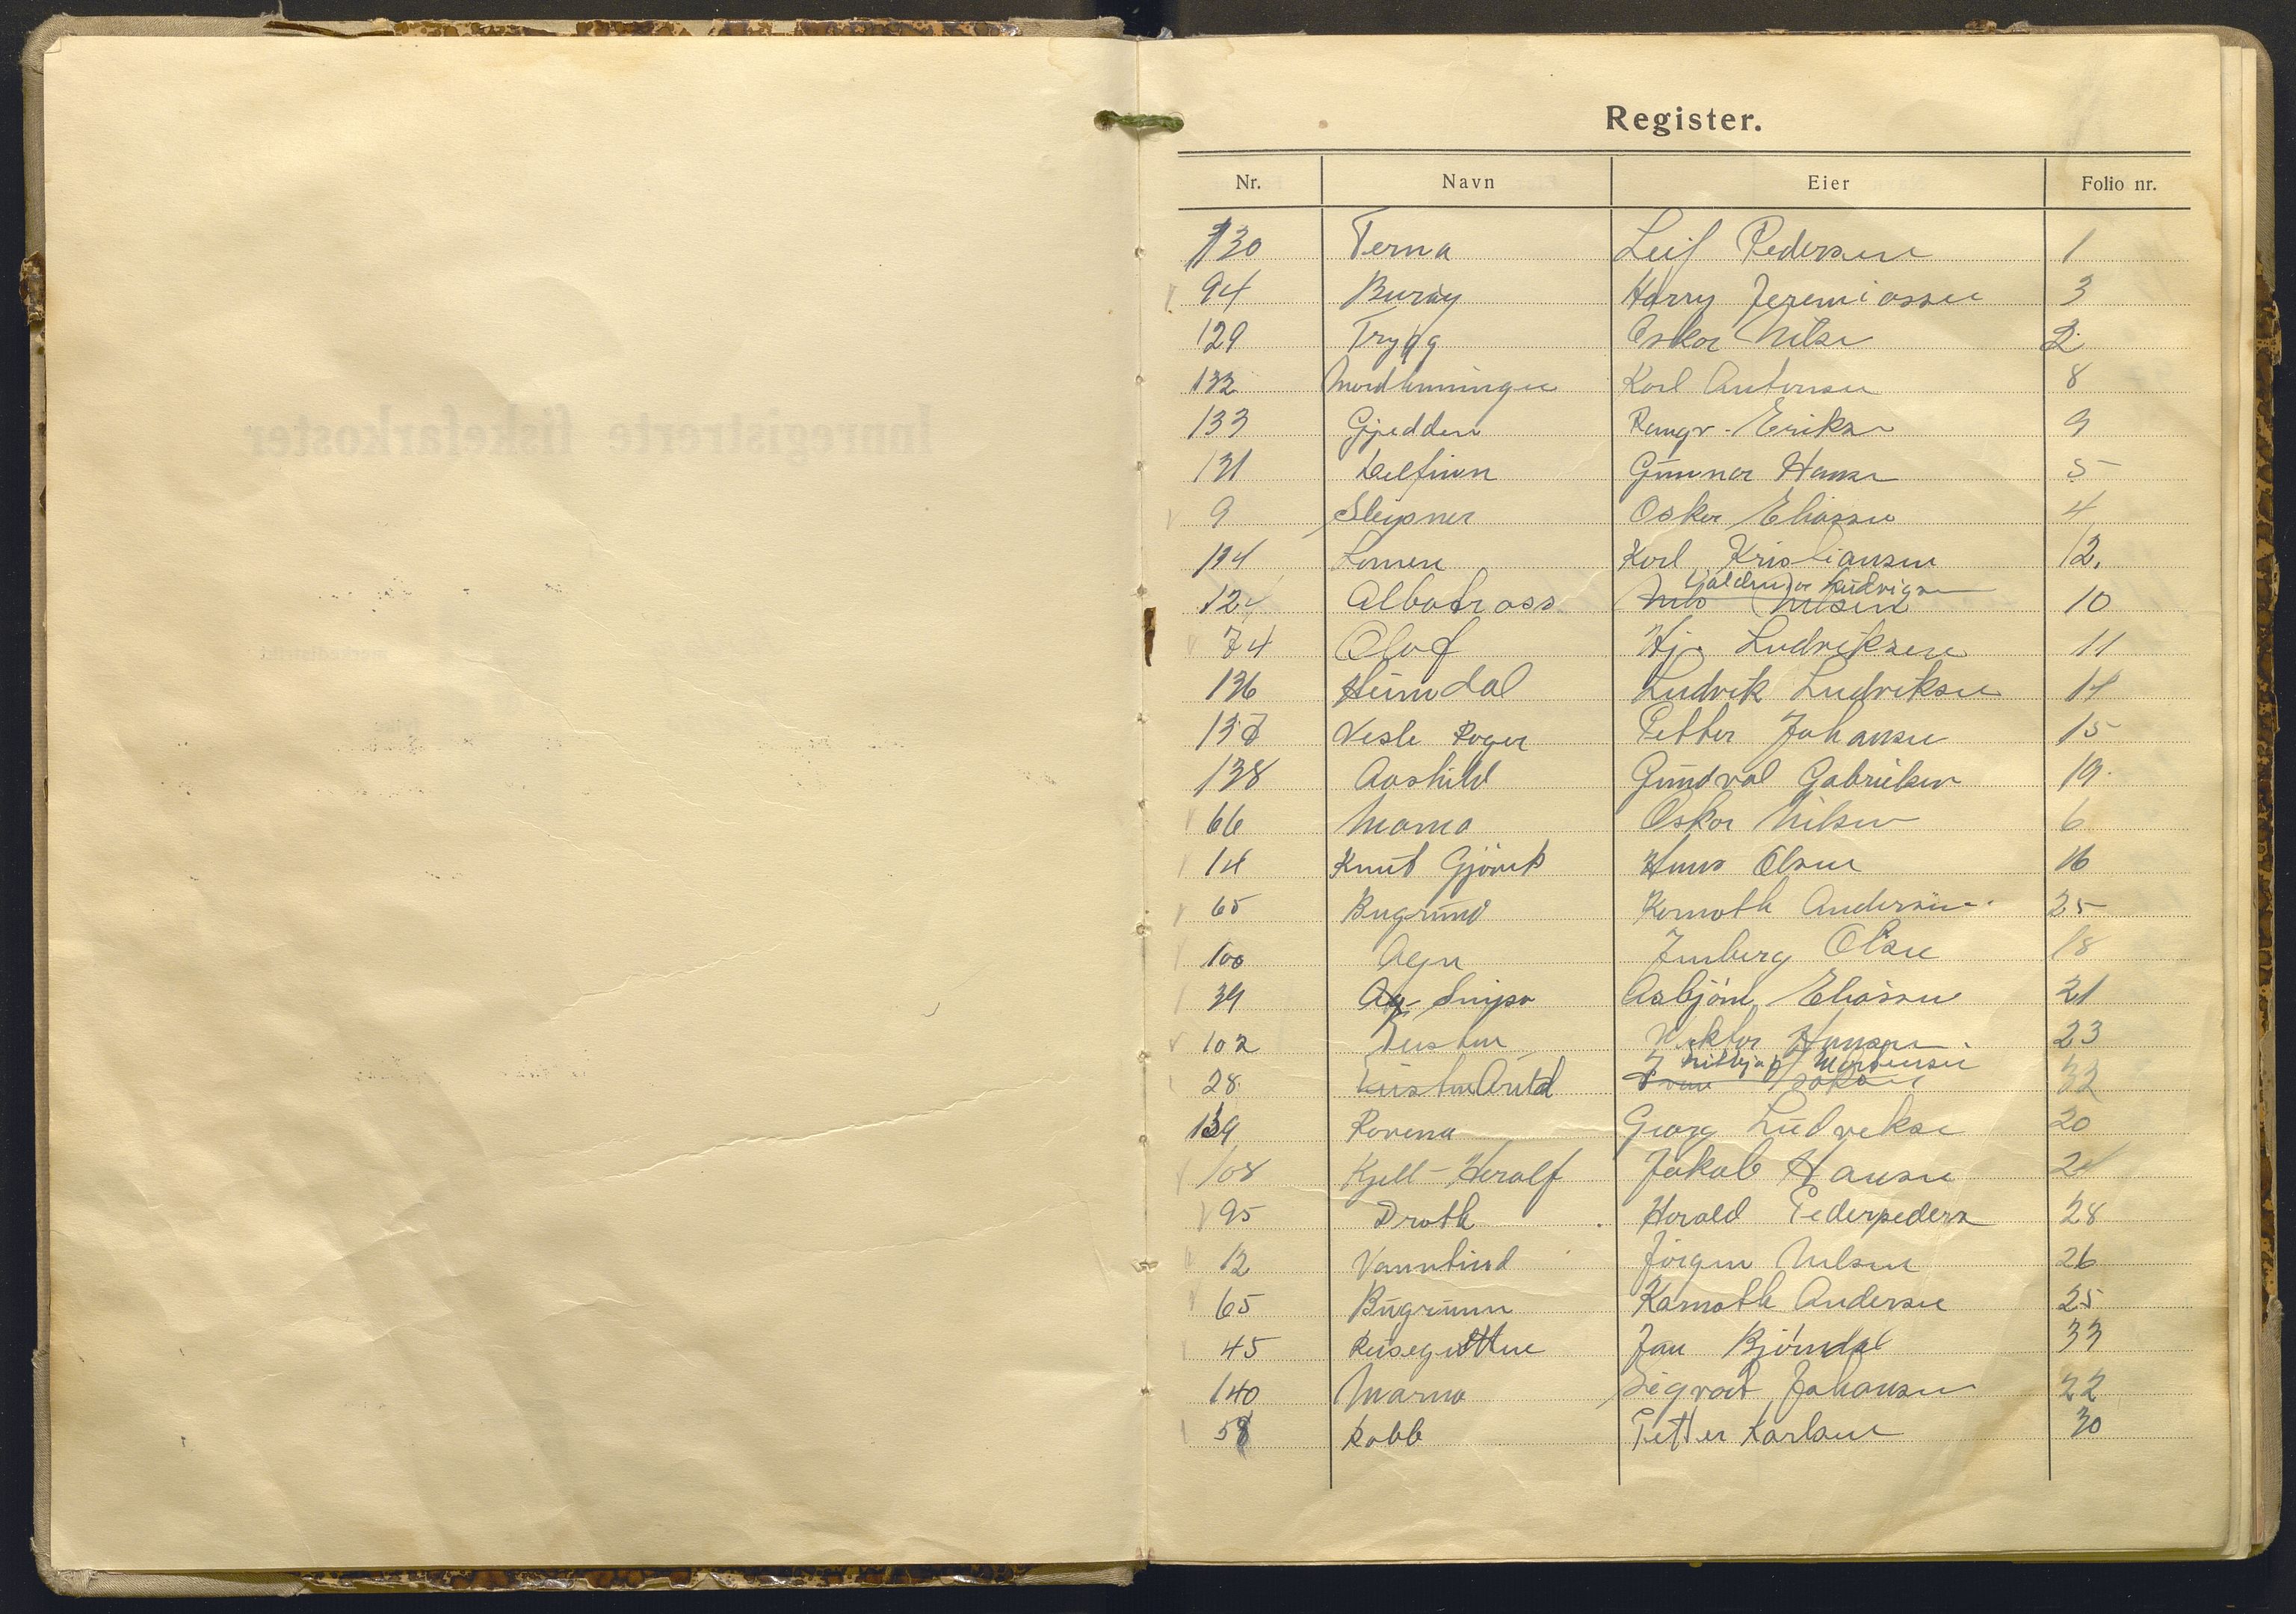 Register.
Nr. Navn Eier Folio nr.
130 Terna Leif Pedersen 1
94 Burøy Harry Jeremiassen 3
129 Trygg Oskar Nilsen 2
132 Nordlenningen Karl Antonsen 8
133 Gjedden Ragnv. Eriksen 9
131 Delfinen Gunnar Hansen 5
9 Sleipner Oskar Eliassen 4
134 Lomen Karl Kristiansen 12.
Hjaldmar Ludvigsen
124 Albatross Nils Nilsen 10
74 Olaf Hj. Ludviksen 11
136 Heimdal Ludvik Ludviksen 14
137 Vesle Roger Petter Johansen 15
138 Aashild Gundval Gabrielsen 19
66 Mama Oskar Nilsen 6
14 Knut Gjönk Hans Olsen 16
65 Bugrund Kornoth Andersen 25
100 Ægir Imberg Olsen 18
39 Snipa Asbjörn Eliassen 21
102 Teisten Viktor Hansen 23
Mortensen
28 Arild 32
139 Rovena Georg Ludviksen 20
108 Kjell-Heralf Jakob Hansen 24
95 Droth Harald Pederpedersen 28
12 Vanntind Jörgen Nilsen 26
65 Bugrunn Karnoth Andersen 25
45 Reisegutten Jan Björndal 33
140 Marna Sigvart Johansen 22
58 Kobb Petter Karlsen 30